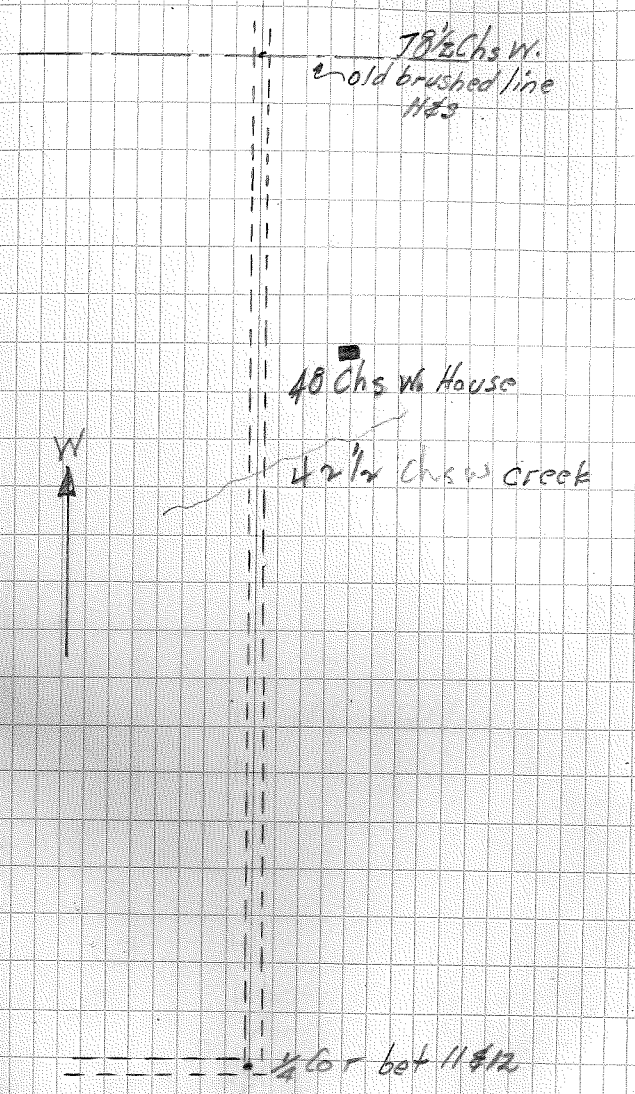 78½ Chs W.
old brushed line
N&S
48 Chs W. House
W
42½ Chs W creek
¼ Cor bet 11 & 12